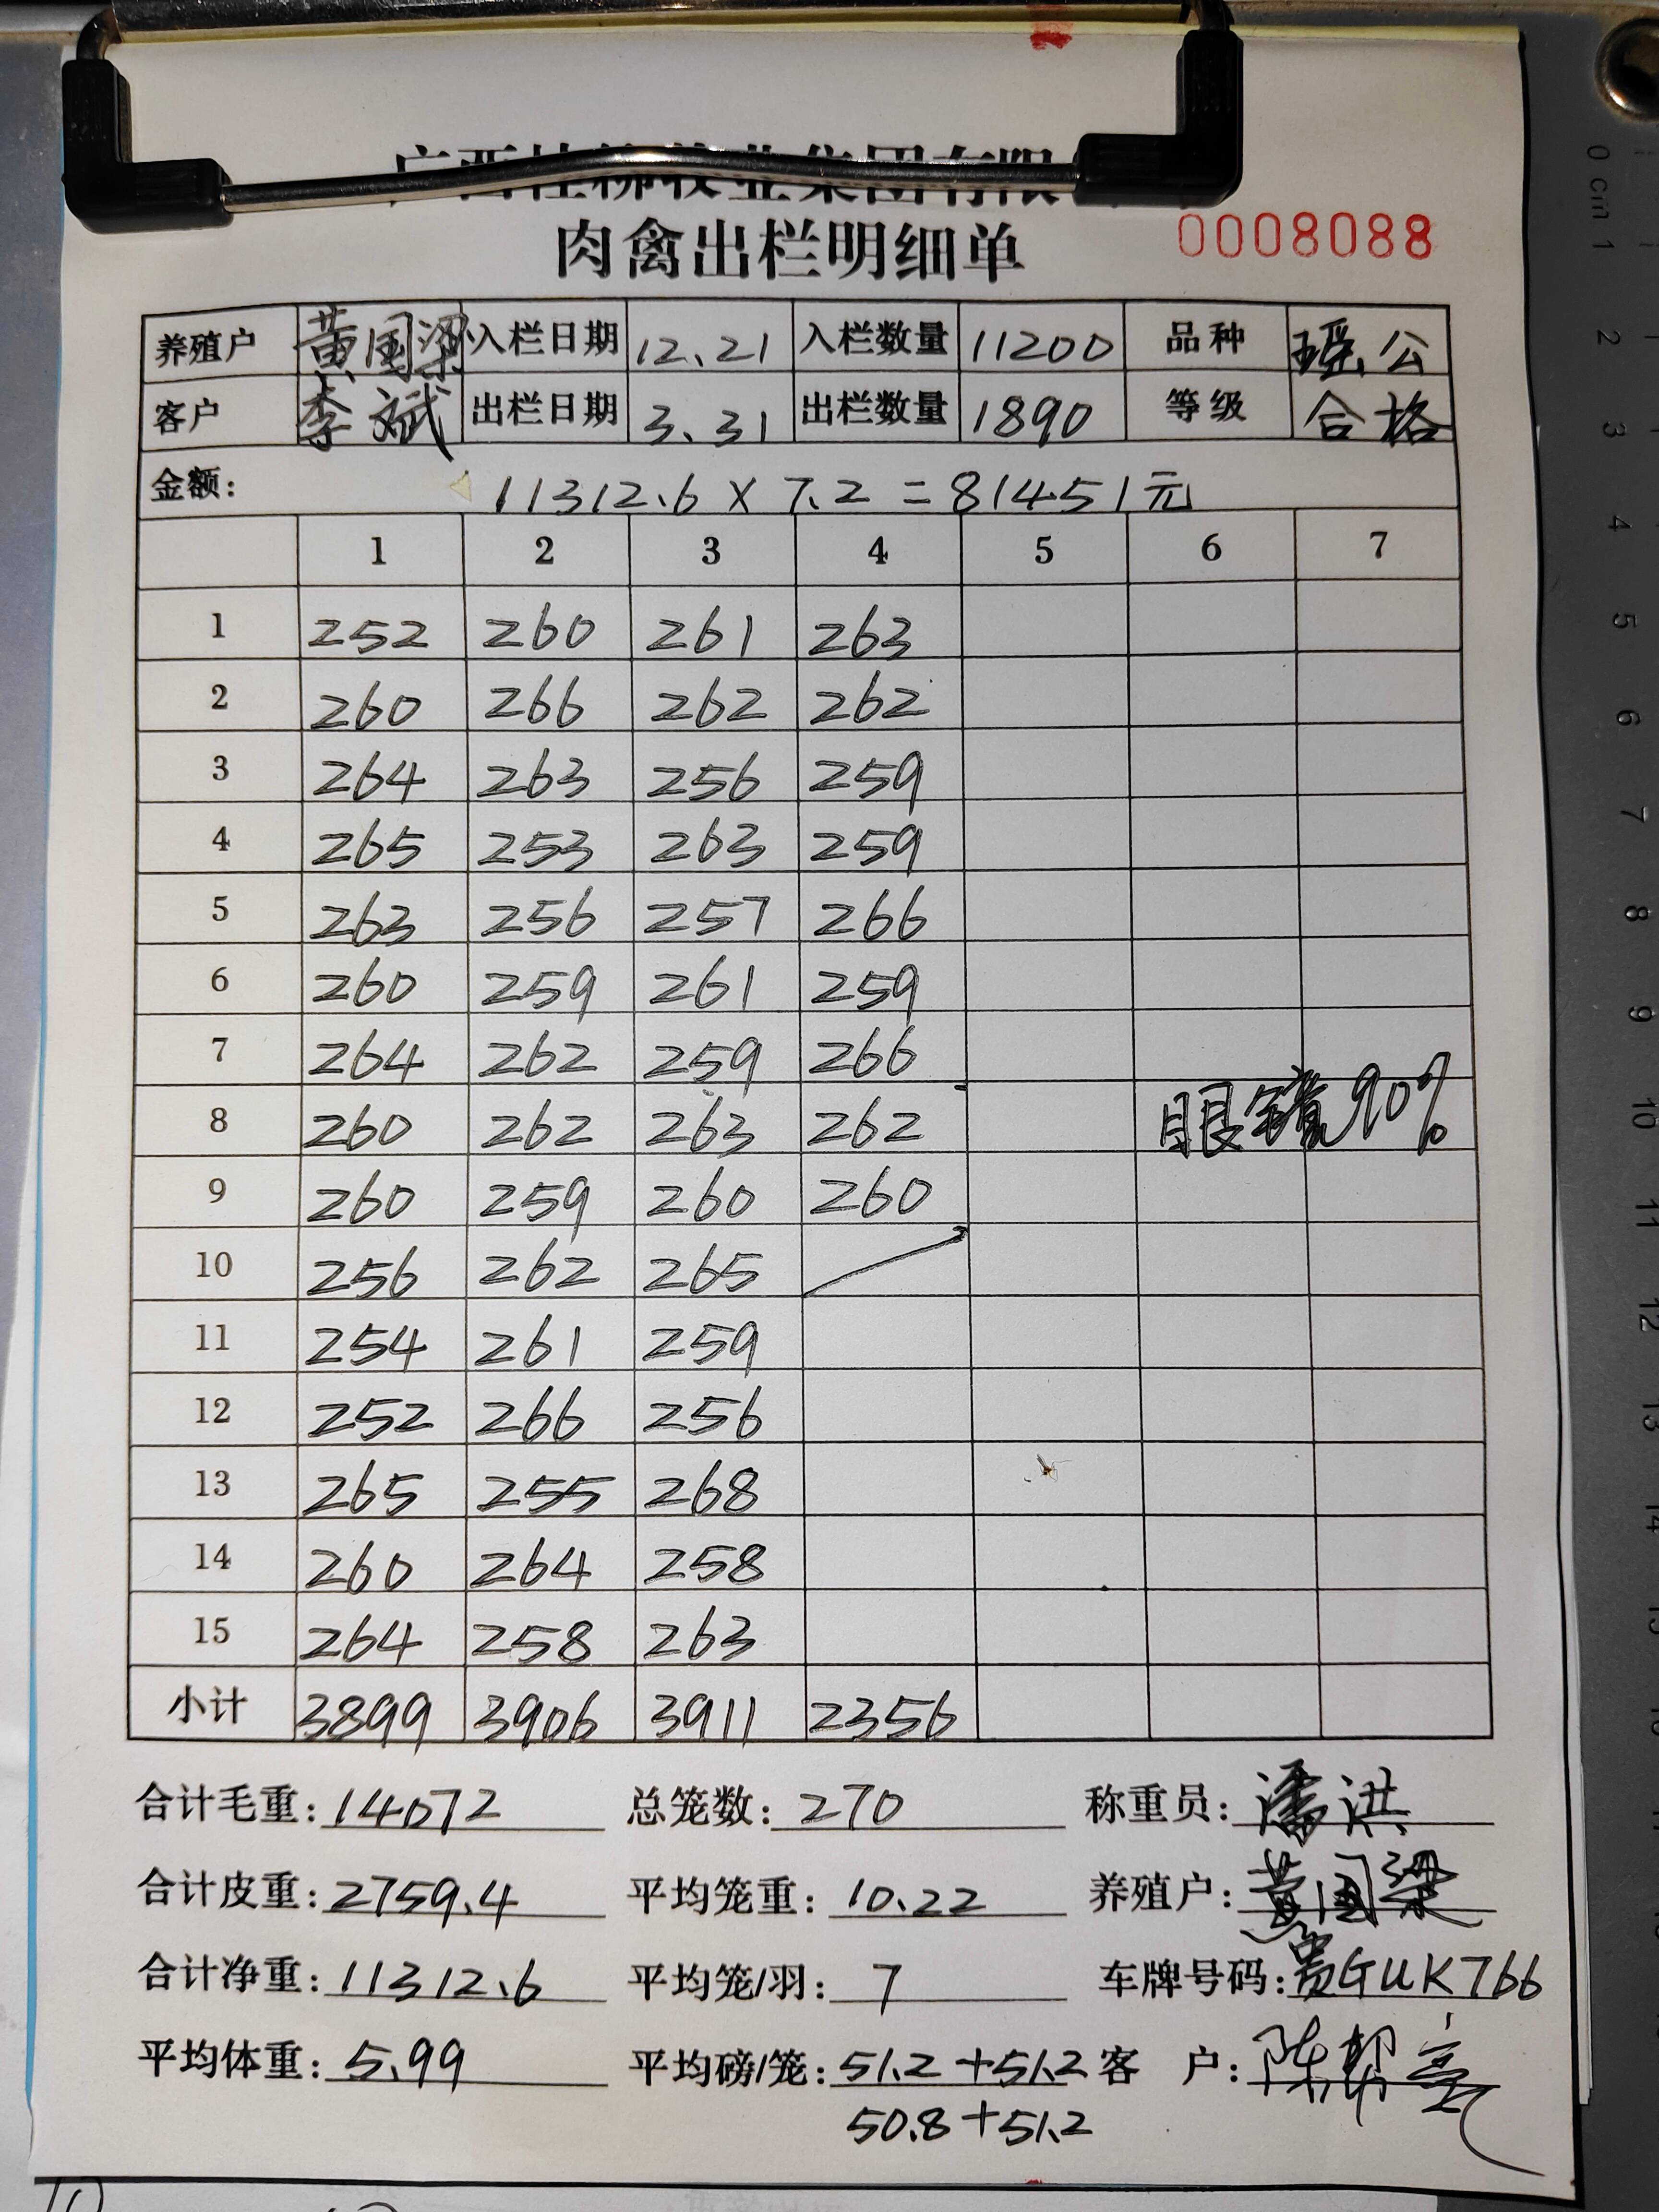 肉禽出栏明细单 0008088
养殖户 黄国梁 入栏日期 12.21 入栏数量 11200 品种 瑶公
客户 李斌 出栏日期 3.31 出栏数量 1890 等级 合格
金额: 11312.6 × 7.2 = 81451元
1 2 3 4 5 6 7
1 252 260 261 263
2 260 266 262 262
3 264 263 256 259
4 265 253 263 259
5 263 256 257 266
6 260 259 261 259
7 264 262 259 266
8 260 262 263 262 眼镜90%
9 260 259 260 260
10 256 262 265
11 254 261 259
12 252 266 256
13 265 255 268
14 260 264 258
15 264 258 263
小计 3899 3906 3911 2356
合计毛重: 14072 总笼数: 270 称重员: 潘洪
合计皮重: 2759.4 平均笼重: 10.22 养殖户: 黄国梁
合计净重: 11312.6 平均笼/羽: 7 车牌号码: 贵GUK766
平均体重: 5.99 平均磅/笼: 51.2+51.2 客 户:
50.8+51.2
0 cm 1 2 3 4 5 6 7 8 9 10 11 12 13 14